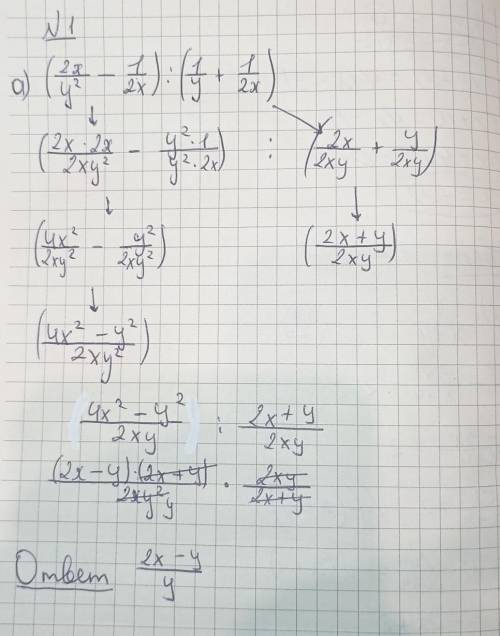 N1
а) (2x/y² - 1/2x) : (1/y + 1/2x)
(2x·2x/2xy² - y²·1/y²·2x) : (2x/2xy + y/2xy)
(4x²/2xy² - y²/2xy²) (2x+y/2xy)
(4x² - y²/2xy²)
4x² - y²/2xy : 2x+y/2xy
(2x-y)·(2x+y)/2xy² y · 2xy/2x+y
Ответ 2x-y/y